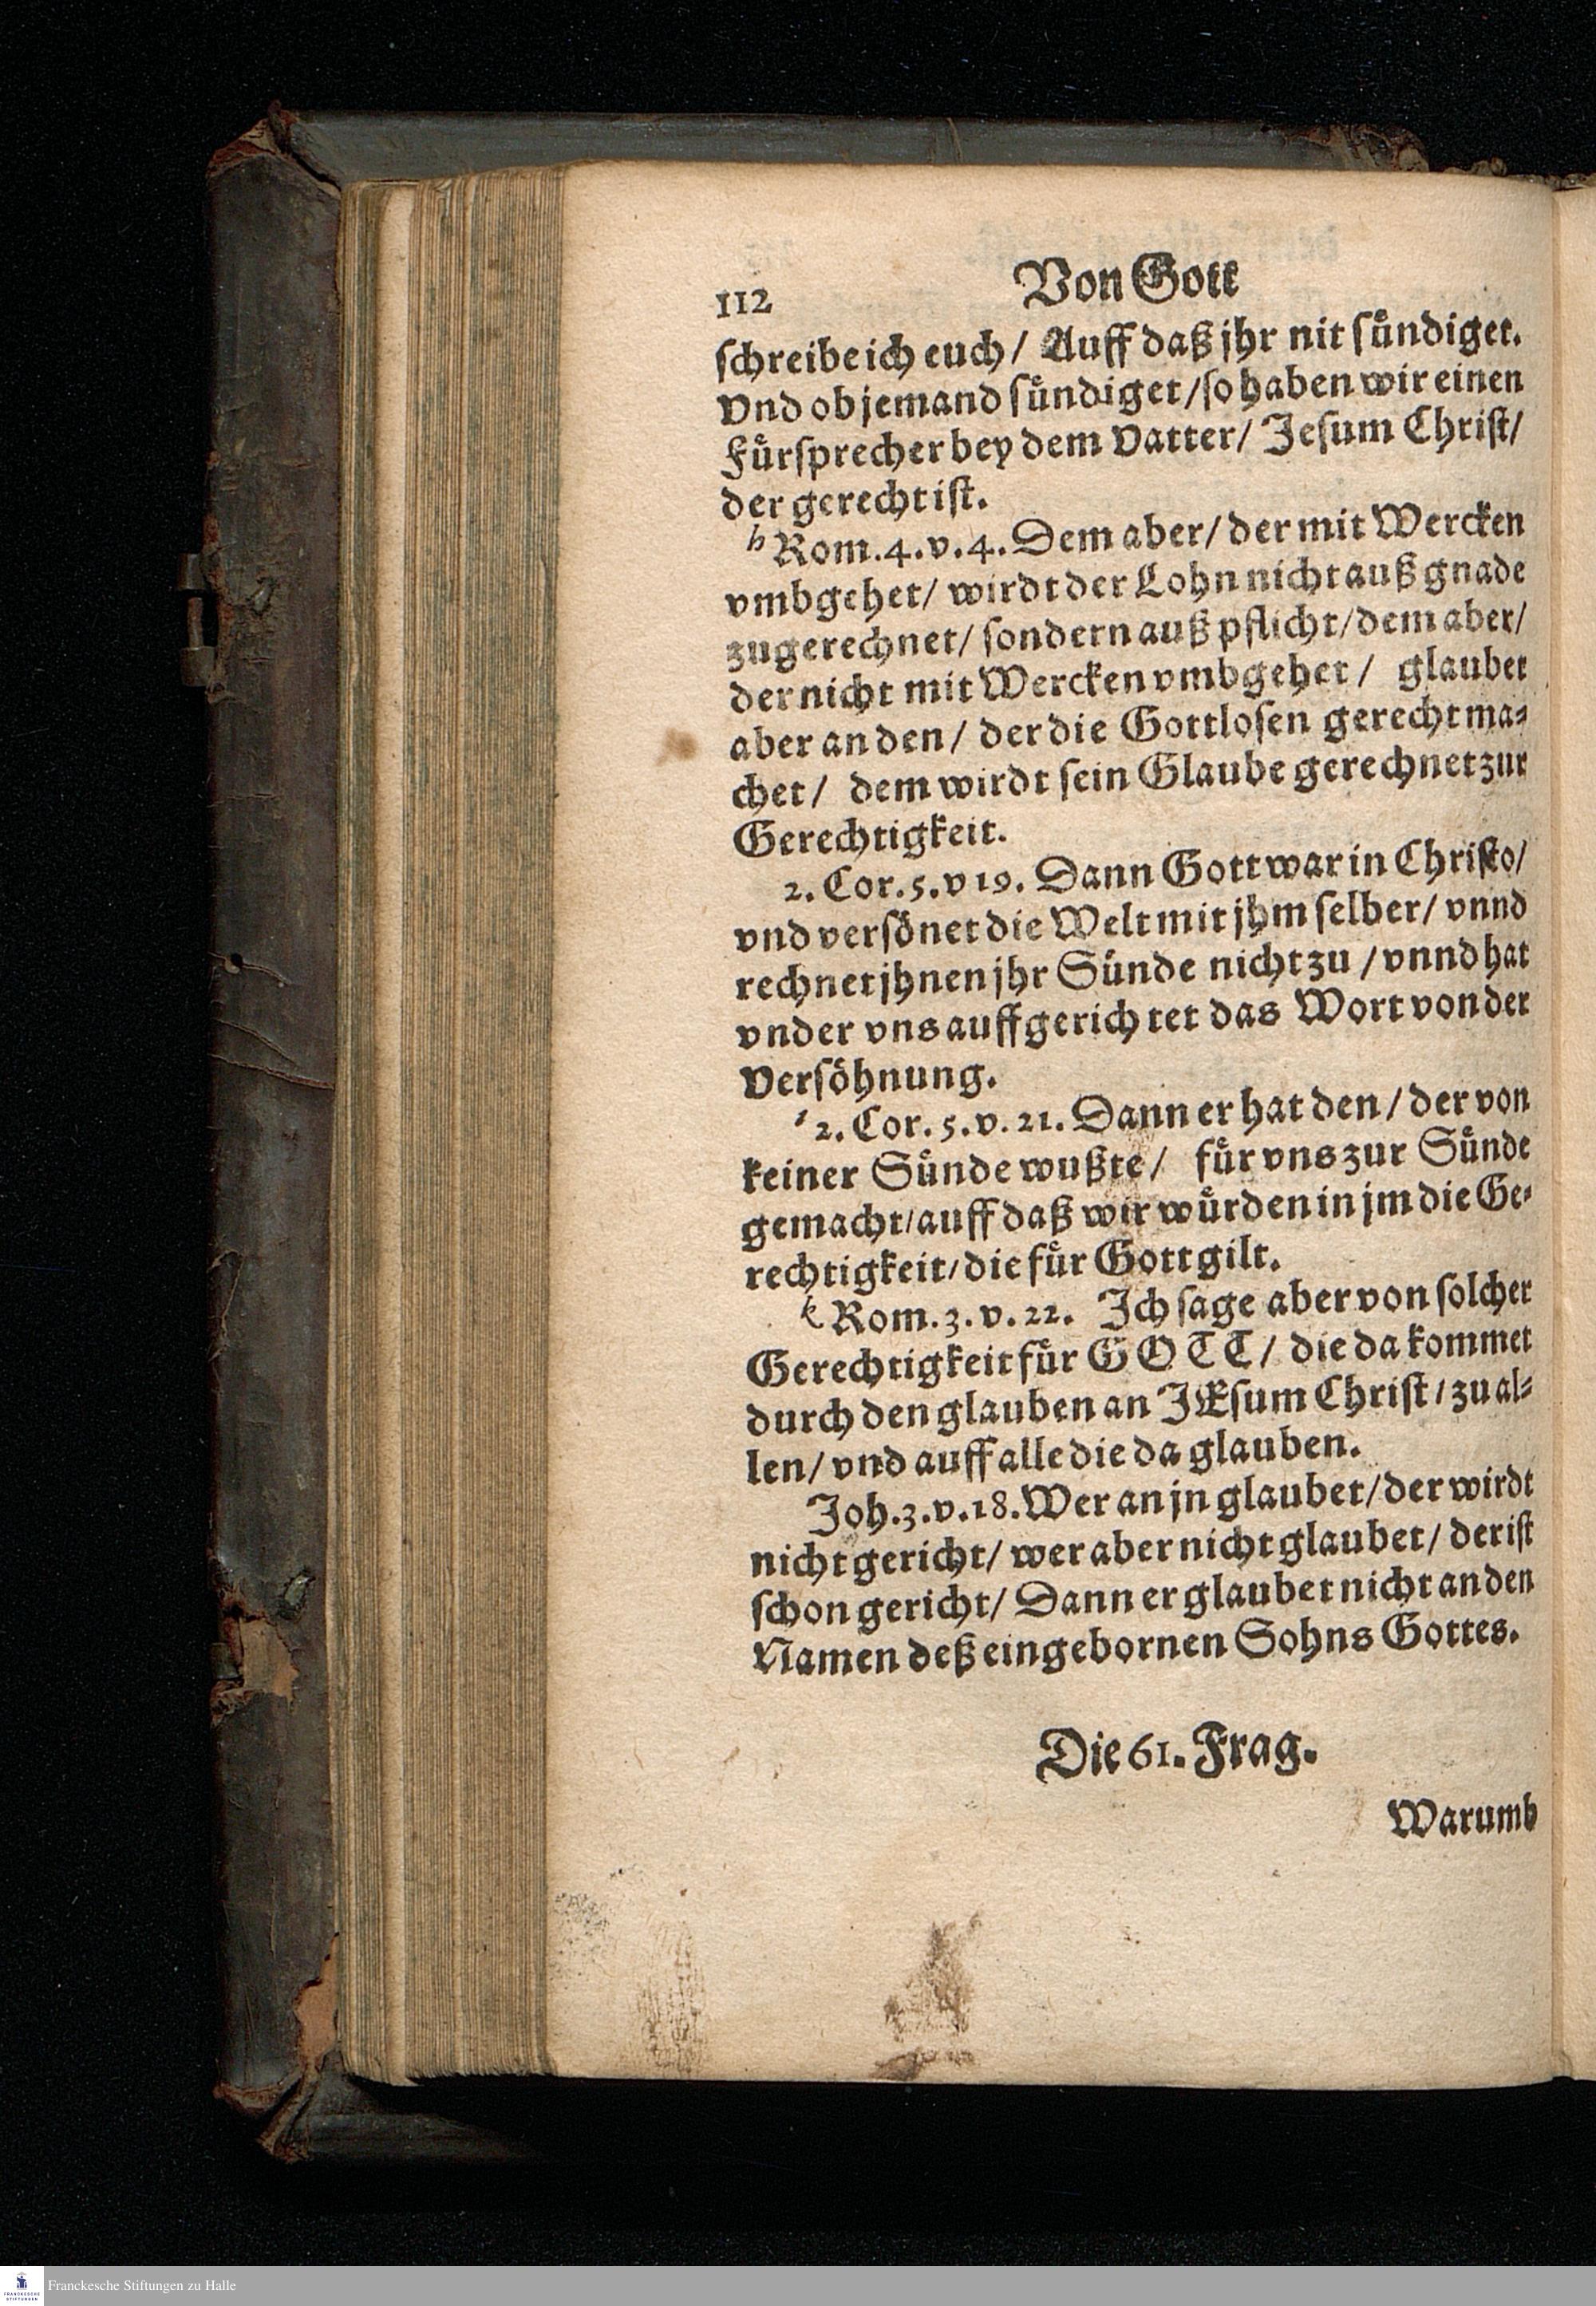 112 Von Gott
schreibe ich euch / Auff daß jhr nit sündiget.
Vnd ob jemand sündiget / so haben wir einen
Fürsprecher bey dem Vatter / Jesum Christ /
der gerecht ist.
h Rom. 4. v. 4. Dem aber / der mit Wercken
vmbgehet / wirdt der Lohn nicht auß gnade
zugerechnet / sondern auß pflicht / dem aber /
der nicht mit Wercken vmbgehet / glaubet
aber an den / der die Gottlosen gerecht ma-
chet / dem wirdt sein Glaube gerechnet zur
Gerechtigkeit.
2. Cor. 5. v 19. Dann Gott war in Christo /
vnd versönet die Welt mit jhm selber / vnnd
rechnet jhnen jhr Sünde nicht zu / vnnd hat
vnder vns auffgerichtet das Wort von der
Versöhnung.
i 2. Cor. 5. v. 21. Dann er hat den / der von
keiner Sünde wußte / für vns zur Sünde
gemacht / auff daß wir würden in jm die Ge-
rechtigkeit / die für Gott gilt.
k Rom. 3. v. 22. Ich sage aber von solcher
Gerechtigkeit für GOTT / die da kommet
durch den glauben an JEsum Christ / zu al-
len / vnd auff alle die da glauben.
Joh. 3. v. 18. Wer an jn glaubet / der wirdt
nicht gericht / wer aber nicht glaubet / der ist
schon gericht / Dann er glaubet nicht an den
Namen deß eingebornen Sohns Gottes.
Die 61. Frag.
Warumb
Franckesche Stiftungen zu Halle
FRANCKESCHE
STIFTUNGEN